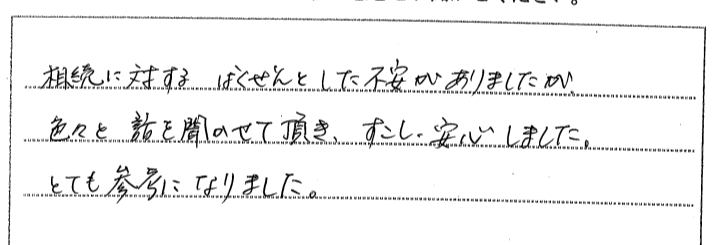 相続に対する ばくぜんとした不安がありましたが、
色々と 話を聞かせて頂き、すこし安心しました。
とても参考になりました。